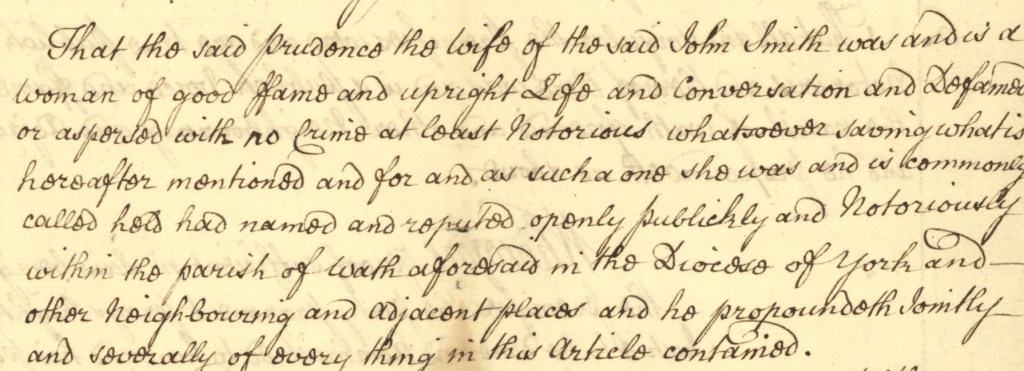 That the said Prudence the Wife of the said John Smith was and is a
woman of good ffame and upright Life and Conversation and Defamed
or aspersed with no Crime at least Notorious whatsoever saving what is
hereafter mentioned and for and as such a one she was and is commonly
called held had named and reputed openly publickly and Notoriously
within the parish of Wath aforesaid in the Diocese of York and
other Neighbouring and adjacent places and he propoundeth Jointly
and severally of every thing in this Article contained.